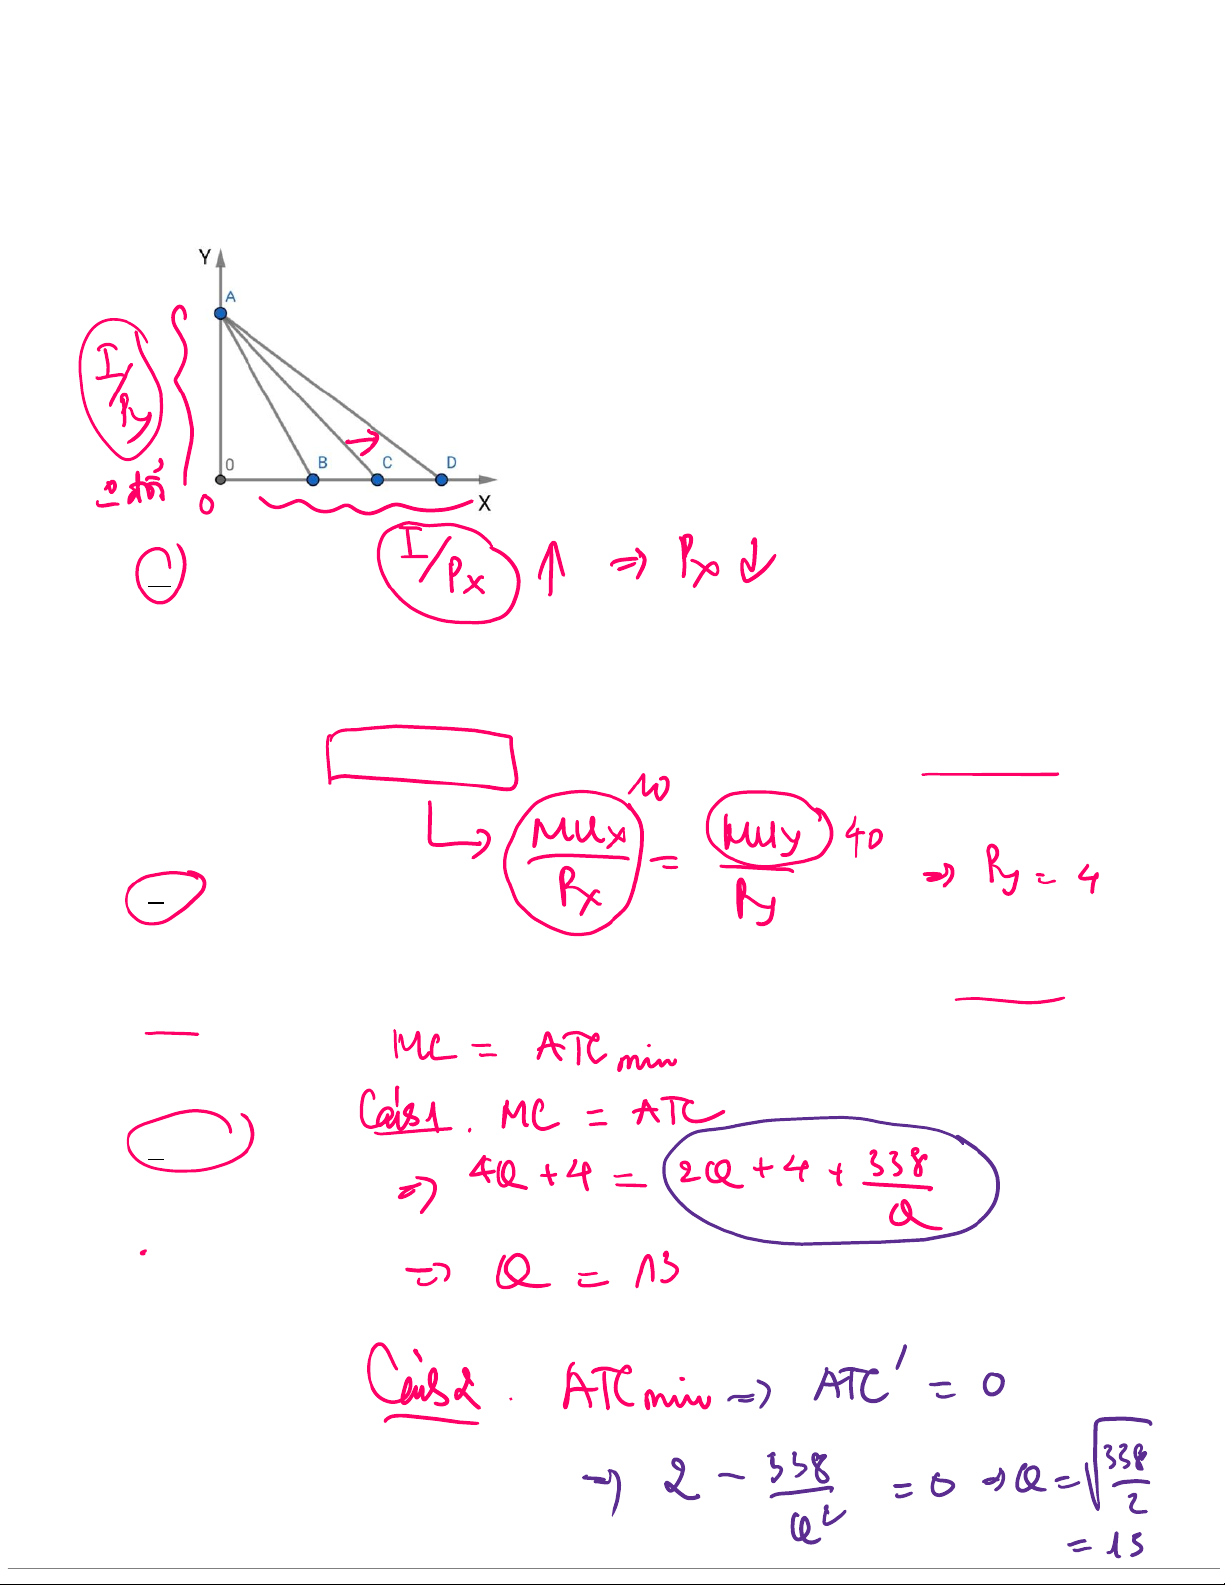 Y
A
I/Py
0
B C D
X
0 đổi
0
I/Px ↑ ⇒ Px ↓
10
MUx/Px = MUy/Py 40 ⇒ Py = 4
MC = ATC min
Cách 1. MC = ATC
⇒ 4Q + 4 = 2Q + 4 + 338/Q
⇒ Q = 13
Cách 2. ATC min ⇒ ATC' = 0
⇒ 2 - 338/Q² = 0 ⇒ Q = √338/2
= 13